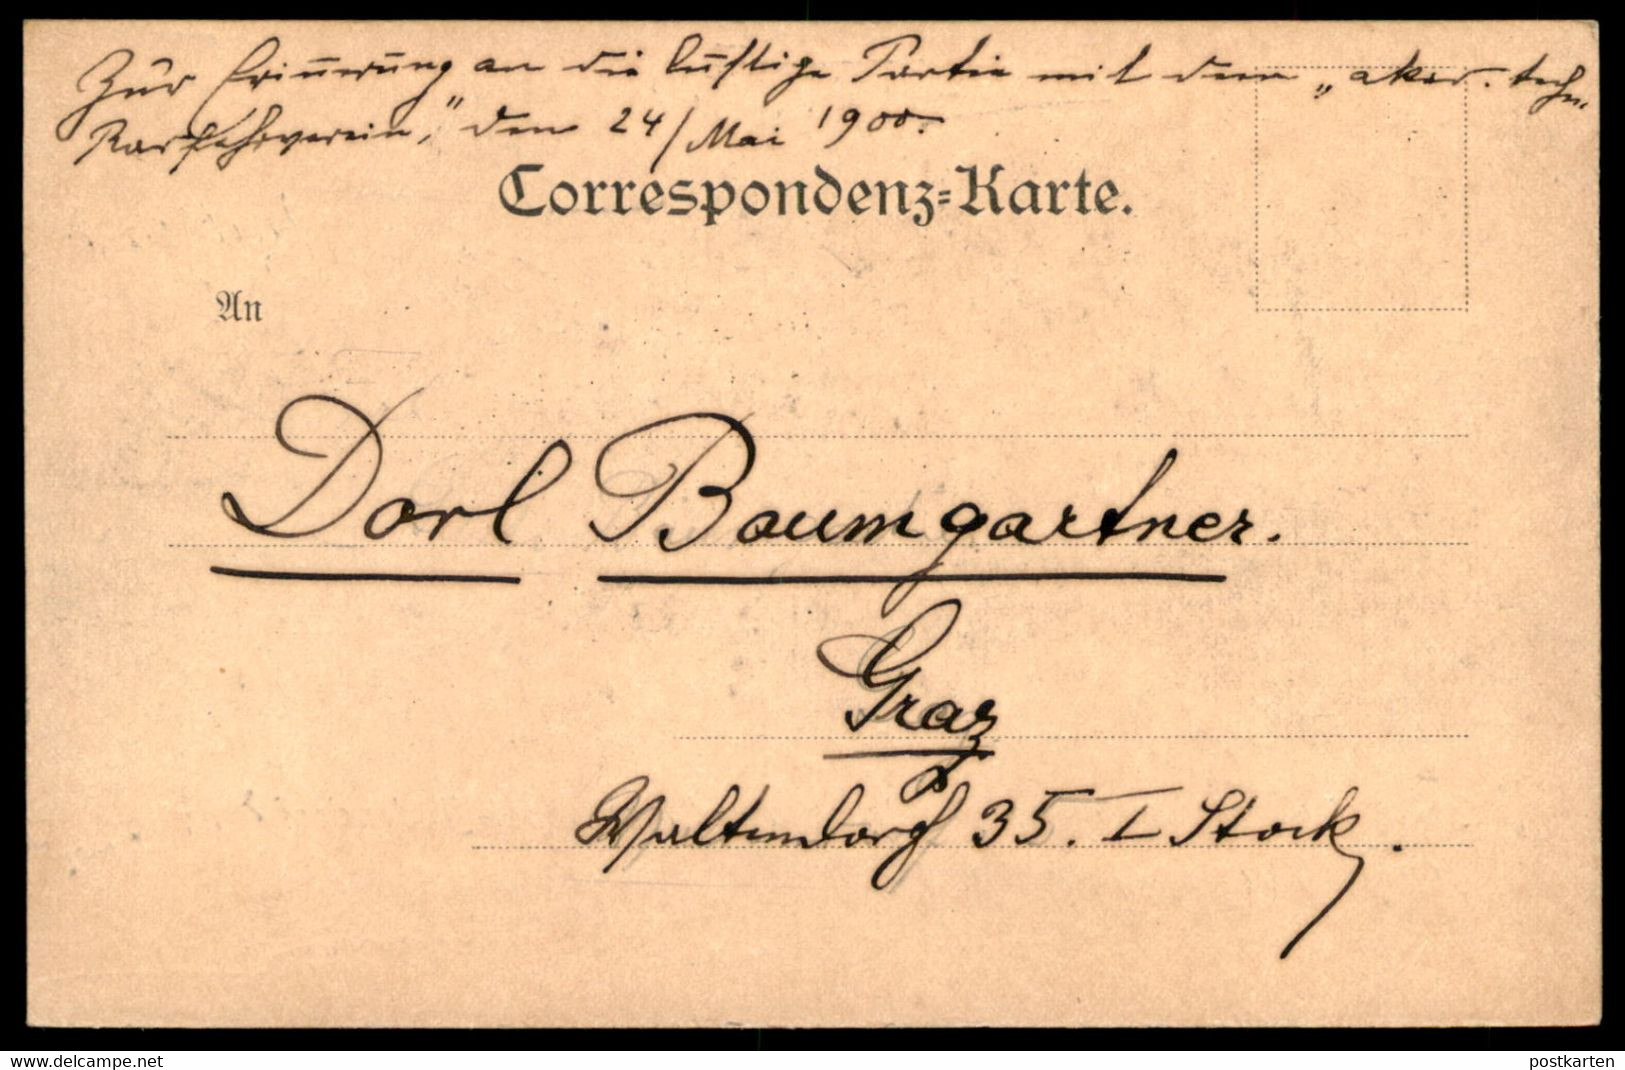 Zur Erinnerung an die lustige Partie mit dem „akad. techn.
Radfahrverein," den 24/Mai 1900.
Correspondenz-Karte.
An
Dorl Baumgartner.
Graz
Waltendorf 35. I Stock.
www.delcampe.net
postkarten